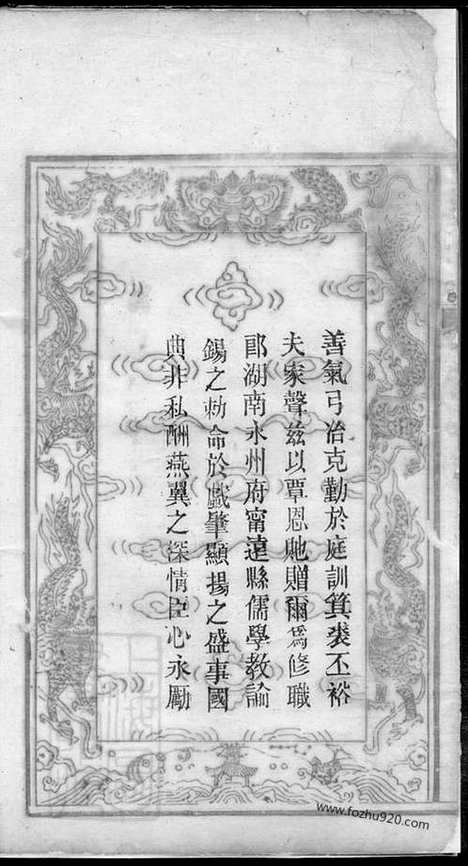 善氣弓冶克勤於庭訓箕裘丕裕
夫家聲兹以覃恩貤贈爾爲修職
郎湖南永州府甯遠縣儒學教諭
錫之勅命於戲肇顯揚之盛事國
典非私酬燕翼之深情臣心永勵
www.fozhu920.com